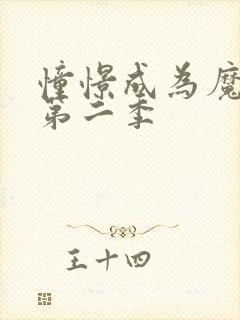 憧憬成為魔
第二季
王十四